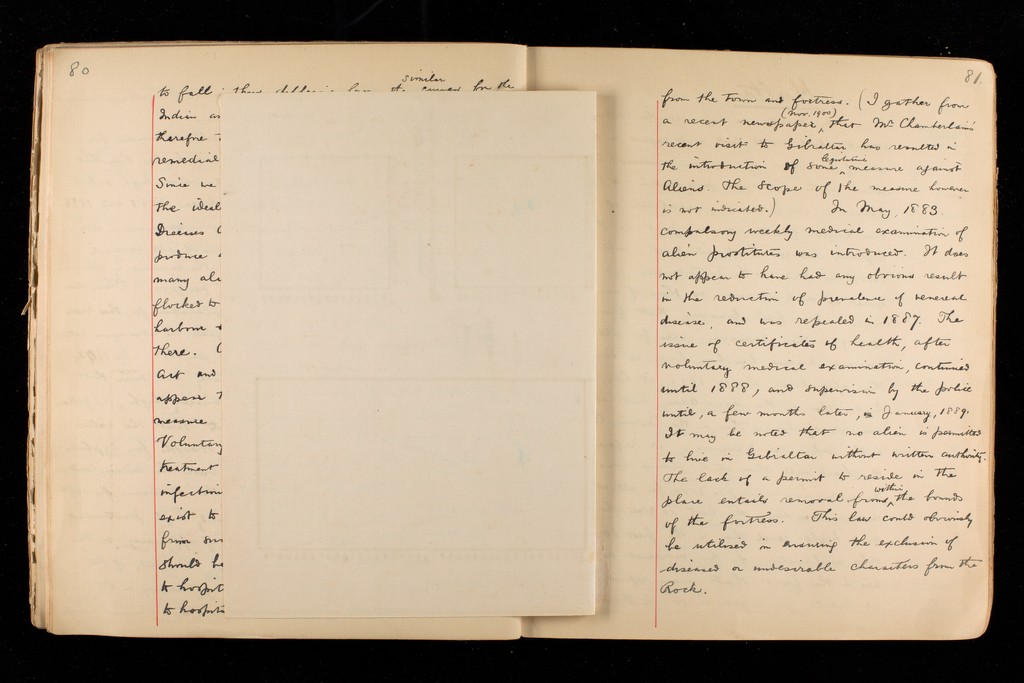 80
similar
to fall
for the
Indian as
therefore
remedial
Since we
the ideal
Diseases
produce
many ali
flocked to
harbour
there.
Act and
appears
measure
Voluntary
treatment
infection
exist to
from
should be
to hospit
to hospita
81.
from the town and fortress. (I gather from
(Nov. 1900)
a recent newspaper, that Mr Chamberlain's
recent visit to Gibraltar has resulted in
legislative
the introduction of some measure against
Aliens. The scope of the measure however
is not indicated.) In May, 1883
compulsory weekly medical examination of
alien prostitutes was introduced. It does
not appear to have had any obvious result
in the reduction of prevalence of venereal
disease, and was repealed in 1887. The
issue of certificates of health, after
voluntary medical examination, continued
until 1888, and supervision by the police
until, a few months later, in January, 1889.
It may be noted that no alien is permitted
to live in Gibraltar without written authority.
The lack of a permit to reside in the
within
place entails removal from the bounds
of the fortress. This law could obviously
be utilised in ensuring the exclusion of
diseased or undesirable characters from the
Rock.